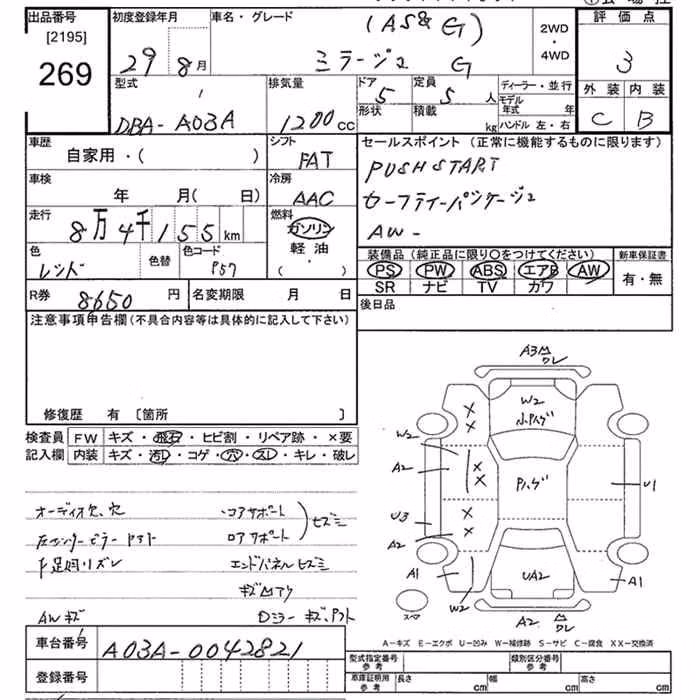 出品番号 初度登録年月 車名・グレード 評価点
[2195] (AS& G) 2WD
269 29 8月 ミラージュ G ・ 4WD 3
型式 排気量 ドア 定員 ディーラー・並行 外装 内装
5 5人 モデル年式 年
形状 積載 kg ハンドル 左・右
DBA-A03A 1200cc C B
車歴 シフト セールスポイント (正常に機能するものに限ります)
自家用・( ) FAT PUSH START
車検 冷房 セーフティーパッケージ
年 月(日) AAC AW-
走行 燃料
8万4千155km ガソリン
軽油
・
( )
色 色替 色コード 装備品 (純正品に限り○をつけてください) 新車保証書
レッド P57 PS PW ABS エアB AW 有・無
SR ナビ TV カワ
R券 8650円 名変期限 月 日 後日品
注意事項申告欄(不具合内容等は具体的に記入して下さい)
修復歴 有 [箇所 ]
検査員 FW キズ・飛石・ヒビ割・リペア跡・×要
記入欄 内装 キズ・汚れ・コゲ・穴・スレ・キレ・破レ
オーディオ欠、穴 コアサポート
ロアサポート ヒズミ
下足回リズレ エンドパネルヒズミ
AWキズ Dミラー キズ
A3 ワレ
W2
W2
A2 Pハゲ U1
U3
A2
A1 W2 UA2 A1
スペア
A2 ワレ
A-キズ E-エクボ U-凹み W-補修跡 S-サビ C-腐食 XX-交換済
車台番号 A03A-0042821
登録番号
型式指定番号 参考 類別区分番号 参考
車庫証明用 参考 長さ cm 幅 cm 高さ cm